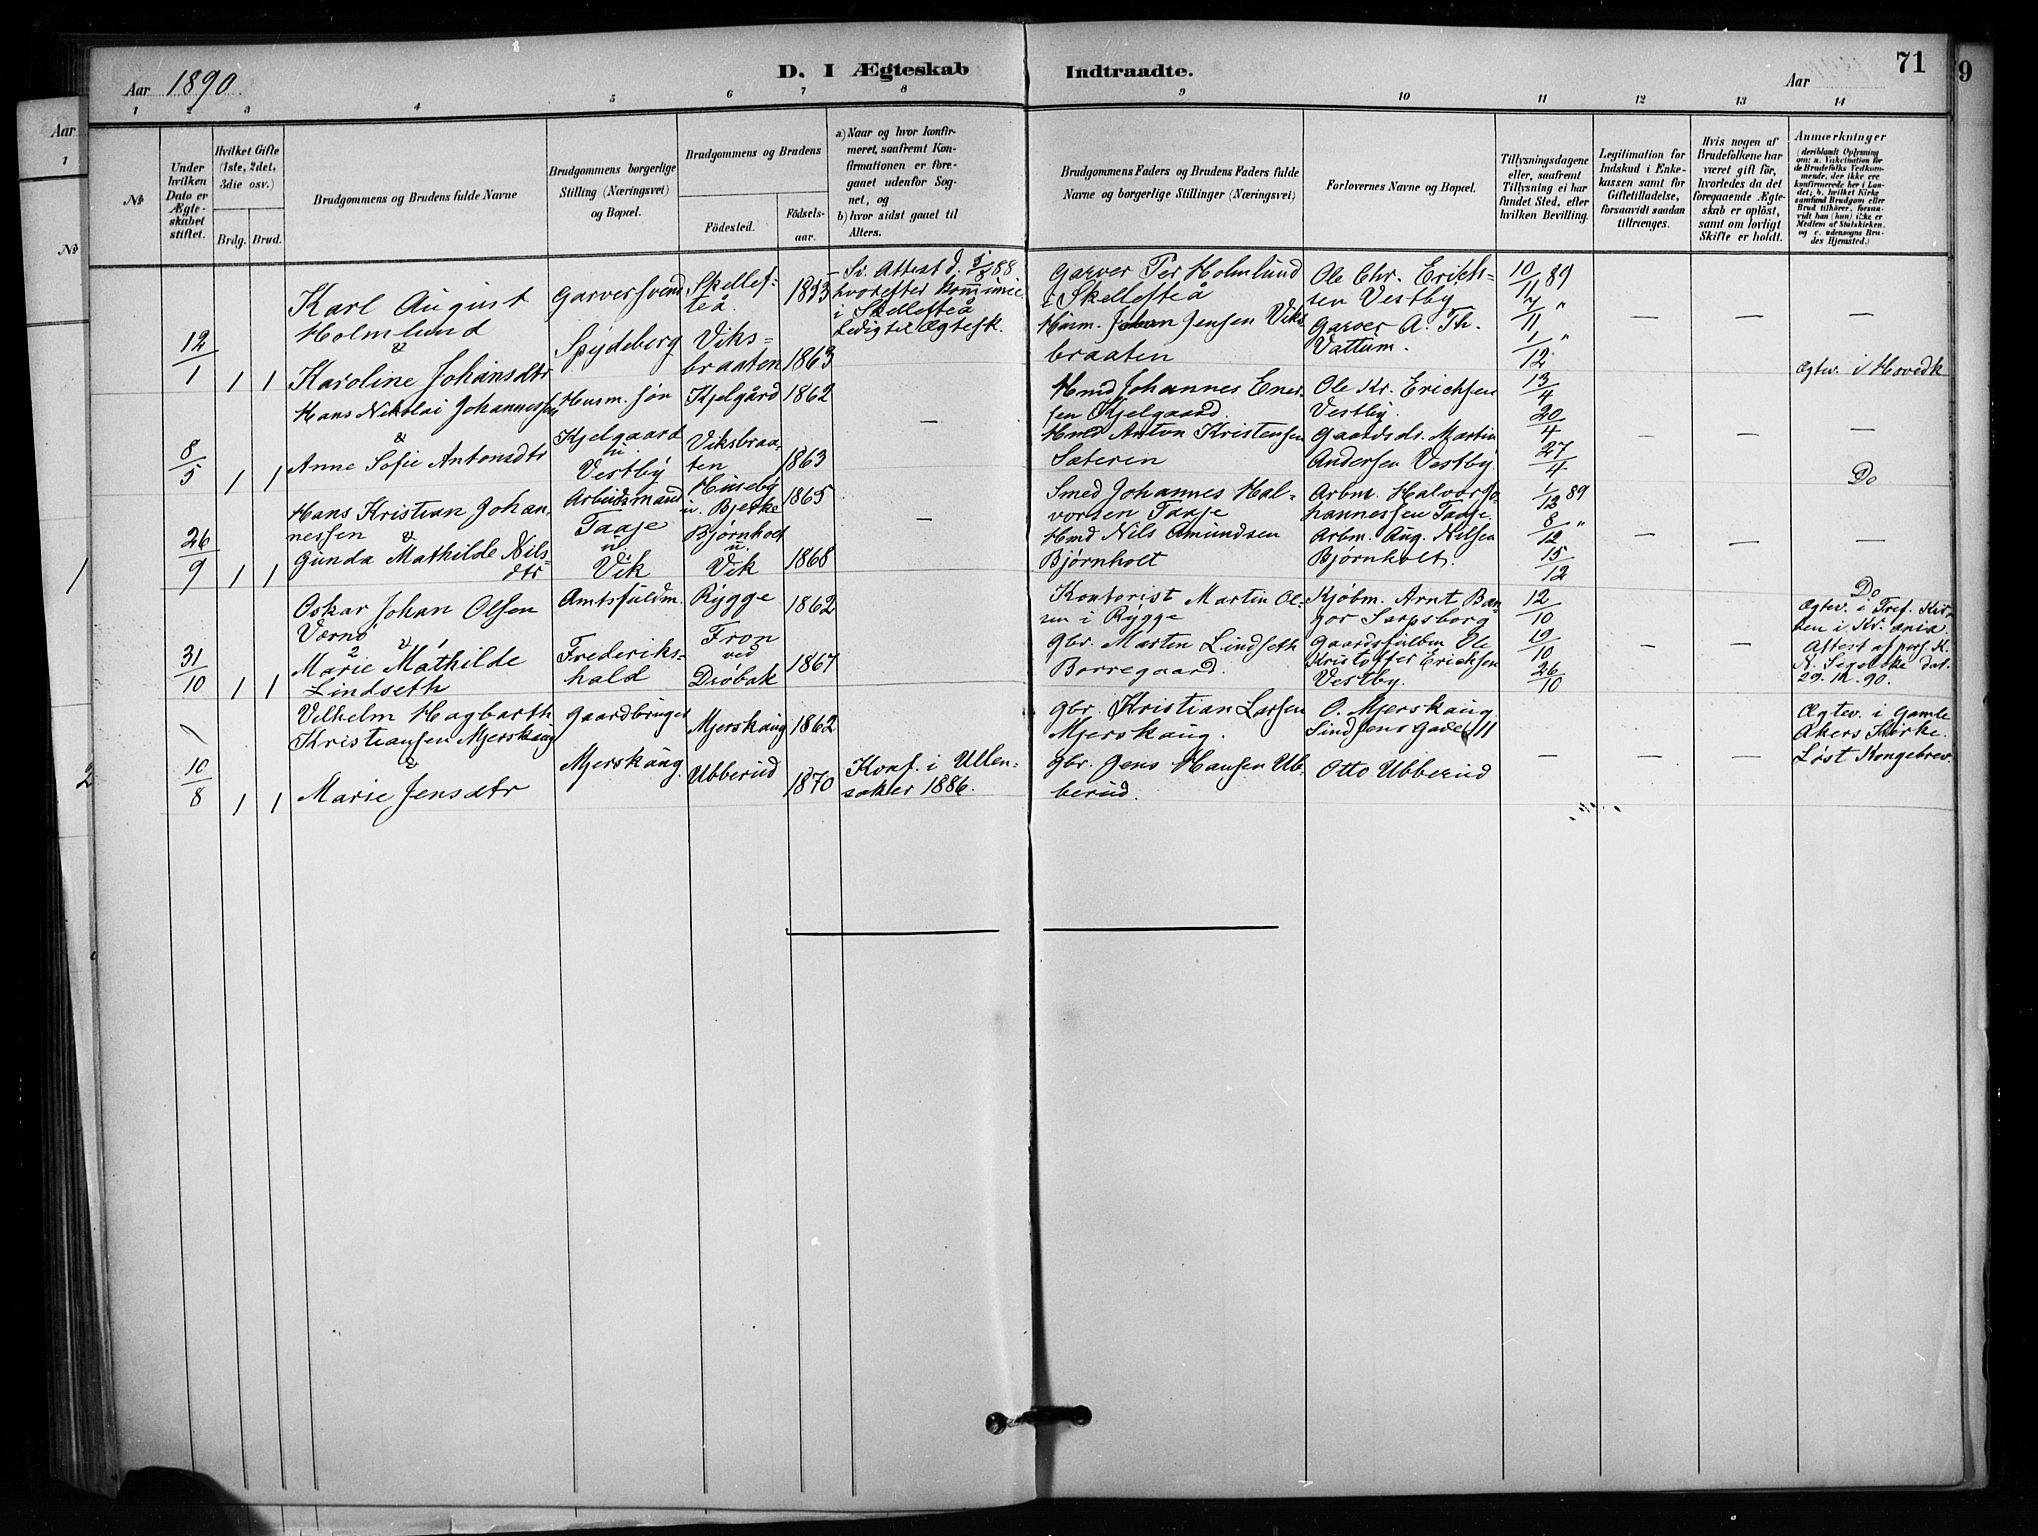 Aar 1890.
D. I Ægteskab Indtraadte.
Aar
71
9
1 2 3 4 5 6 7 8 9 10 11 12 13 14
Aar
1
№
№
Under hvilken Dato er Ægteskabet stiftet.
Hvilket Gifte (1ste, 2det, 3die osv.)
Brdg. Brud.
Brudgommens og Brudens fulde Navne
Brudgommens borgerlige Stilling (Næringsvei) og Bopæl.
Brudgommens og Brudens
Fødested.
Fødsels-aar.
a) Naar og hvor konfirmeret, saafremt Konfirmationen er foregaaet udenfor Sognet, og
b) hvor sidst gaaet til Alters.
Brudgommens Faders og Brudens Faders fulde Navne og borgerlige Stillinger (Næringsvei)
Forlovernes Navne og Bopæl.
Tillysningsdagene eller, saafremt Tillysning ei har fundet Sted, efter hvilken Bevilling.
Legitimation for Indskud i Enkekassen samt for Giftetilladelse, forsaavidt saadan tiltrænges.
Hvis nogen af Brudefolkene har været gift før, hvorledes da det foregaaende Ægteskab er opløst, samt om lovligt Skifte er holdt.
Anmærkninger
(deriblandt Oplysning om: a. Vakcination for de Brudefolks Vedkommende, der ikke ere konfirmerede her i Landet; b. hvilket Kirkesamfund Brudgom eller Brud tilhører, forsaavidt han (hun) ikke er Medlem af Statskirken, og c. udensogns Brudes Hjemsted.)
12/1 1 1
Karl August
Holmlund
&
Karoline Johansdtr
Garversvend
Spydeberg
Skellef-
teå.
1853
Viks-
braaten 1863
Sv. Attest d. 5/8 88
hvorefter kommunic.
i Skellefteå
Ledig til Ægtesk.
Garver Per Holmlund
i Skellefteå
Husm. Johan Jensen Viks
braaten
Ole Chr. Erich-
sen Vestby
Garver A. Th.
Vattum.
10/11 89
/11 "
1/12 "
— — —
Ægtev. i Hovedk
8/5 1 1
Hans Nikolai Johannessen
&
Anne Sofie Antonsdtr
Husm. søn
Kjelgaard
u.
Vestby
Kjelgård 1862
Viksbraa-
ten 1863
—
Hmd Johannes Ener-
sen Kjelgaard.
Hmd Anton Kristensen
Sæteren
Ole Kr. Erichsen
Vestby.
Gaardsdr. Martin
Andersen Vestby.
13/4
20/4
27/4
— — —
Do
1
26/9 1 1
Hans Kristian Johan-
nessen &
Gunda Mathilde Nils-
dtr
Arbeidsmand
Taaje
u.
Vik
Huseby
u. Bjerke 1865
Bjørnholt
u.
Vik 1868
—
Smed Johannes Hal-
vorsen Taaje
Hmd Nils Amundsen
Bjørnholt
Arbm. Halvor Jo-
hannessen Taaje.
Arbm. Aug. Nilsen
Bjørnholt.
1/12 89
8/12 "
15/12
— — —
Do
31/10 1 1
Oskar Johan Olsen
Værnø
&
Marie Mathilde
Lindseth
Amtsfuldm.
Frederiks-
hald
Rygge 1862
Fron
ved
Drøbak 1867
Kontorist Martin Ol-
sen i Rygge
Gbr. Martin Lindseth
Borregaard.
Kjøbm. Arnt Ban-
gor Sarpsborg
Gaardsfuldm. Ole
Kristoffer Erichsen
Vestby.
12/10
19/10
26/10
— —
Ægtev. i Tref. Kir-
ken i Kr.ania.
Attest af
dat.
29. 12. 90.
2
10/8 1 1
Vilhelm Hagbarth
Kristiansen Mjerskaug
&
Marie Jensdtr
Gaardbruger
Mjerskaug.
Mjerskaug 1862
Ubberud 1870
Konf. i Ullen-
saker 1886.
Gbr. Kristian Larsen
Mjerskaug.
Gbr. Jens Hansen Ub-
berud.
O. Mjerskaug
Sindsens Gade 11
Otto Ubberud
— — —
Ægtev. i Gamle
Akers Kirke.
Løst Kongebrev.